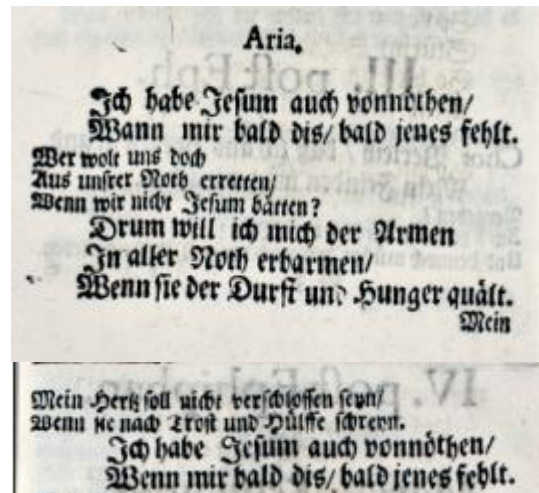 Aria.
Ich habe Jesum auch vonnöthen/
Wann mir bald dis/ bald jenes fehlt.
Wer wolt uns doch
Aus unsrer Noth erretten/
Wenn wir nicht Jesum hätten?
Drum will ich mich der Armen
In aller Noth erbarmen/
Wenn sie der Durst und Hunger quält.
Mein
Mein Hertz soll nicht verschlossen seyn/
Wenn sie nach Trost und Hülffe schreyn.
Ich habe Jesum auch vonnöthen/
Wenn mir bald dis/ bald jenes fehlt.